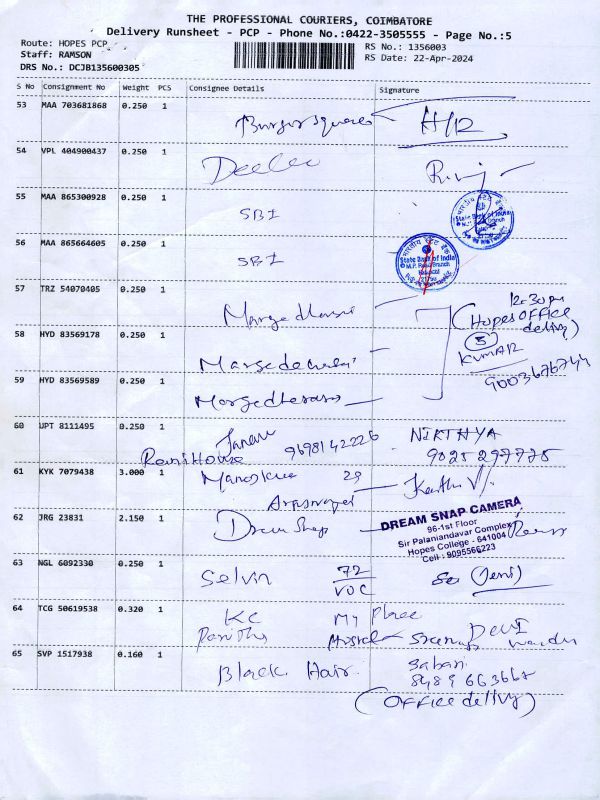 THE PROFESSIONAL COURIERS, COIMBATORE
Delivery Runsheet - PCP - Phone No.:0422-3505555 - Page No.:5
Route: HOPES PCP
RS No.: 1356003
Staff: RAMSON
RS Date: 22-Apr-2024
DRS No.: DCJB135600305
S No Consignment No Weight PCS Consignee Details Signature
53 MAA 703681868 0.250 1
54 VPL 404900437 0.250 1
55 MAA 865300928 0.250 1
SBI
State Bank of India
56 MAA 865664605 0.250 1
SBI
State Bank of India
57 TRZ 54070405 0.250 1
12-30 pm
(Hopes OFFice
delivy)
58 HYD 83569178 0.250 1
5
KUMAR
9003676744
59 HYD 83569589 0.250 1
60 UPT 8111495 0.250 1
9698142226
NIRTHYA
9025297775
Rani House
61 KYK 7079438 3.000 1
29
62 JRG 23831 2.150 1
Dream Snap
DREAM SNAP CAMERA
96-1st Floor
Sir Palaniandavar Complex
Hopes College - 641004
Cell : 9095566223
63 NGL 6092330 0.250 1
Selvin 72
VOC
(Jeni)
64 TCG 50619538 0.320 1
KC My Place
Pavithra
DEVI
65 SVP 1517938 0.160 1
Black Hair
Sabari
(OFFice delivy)